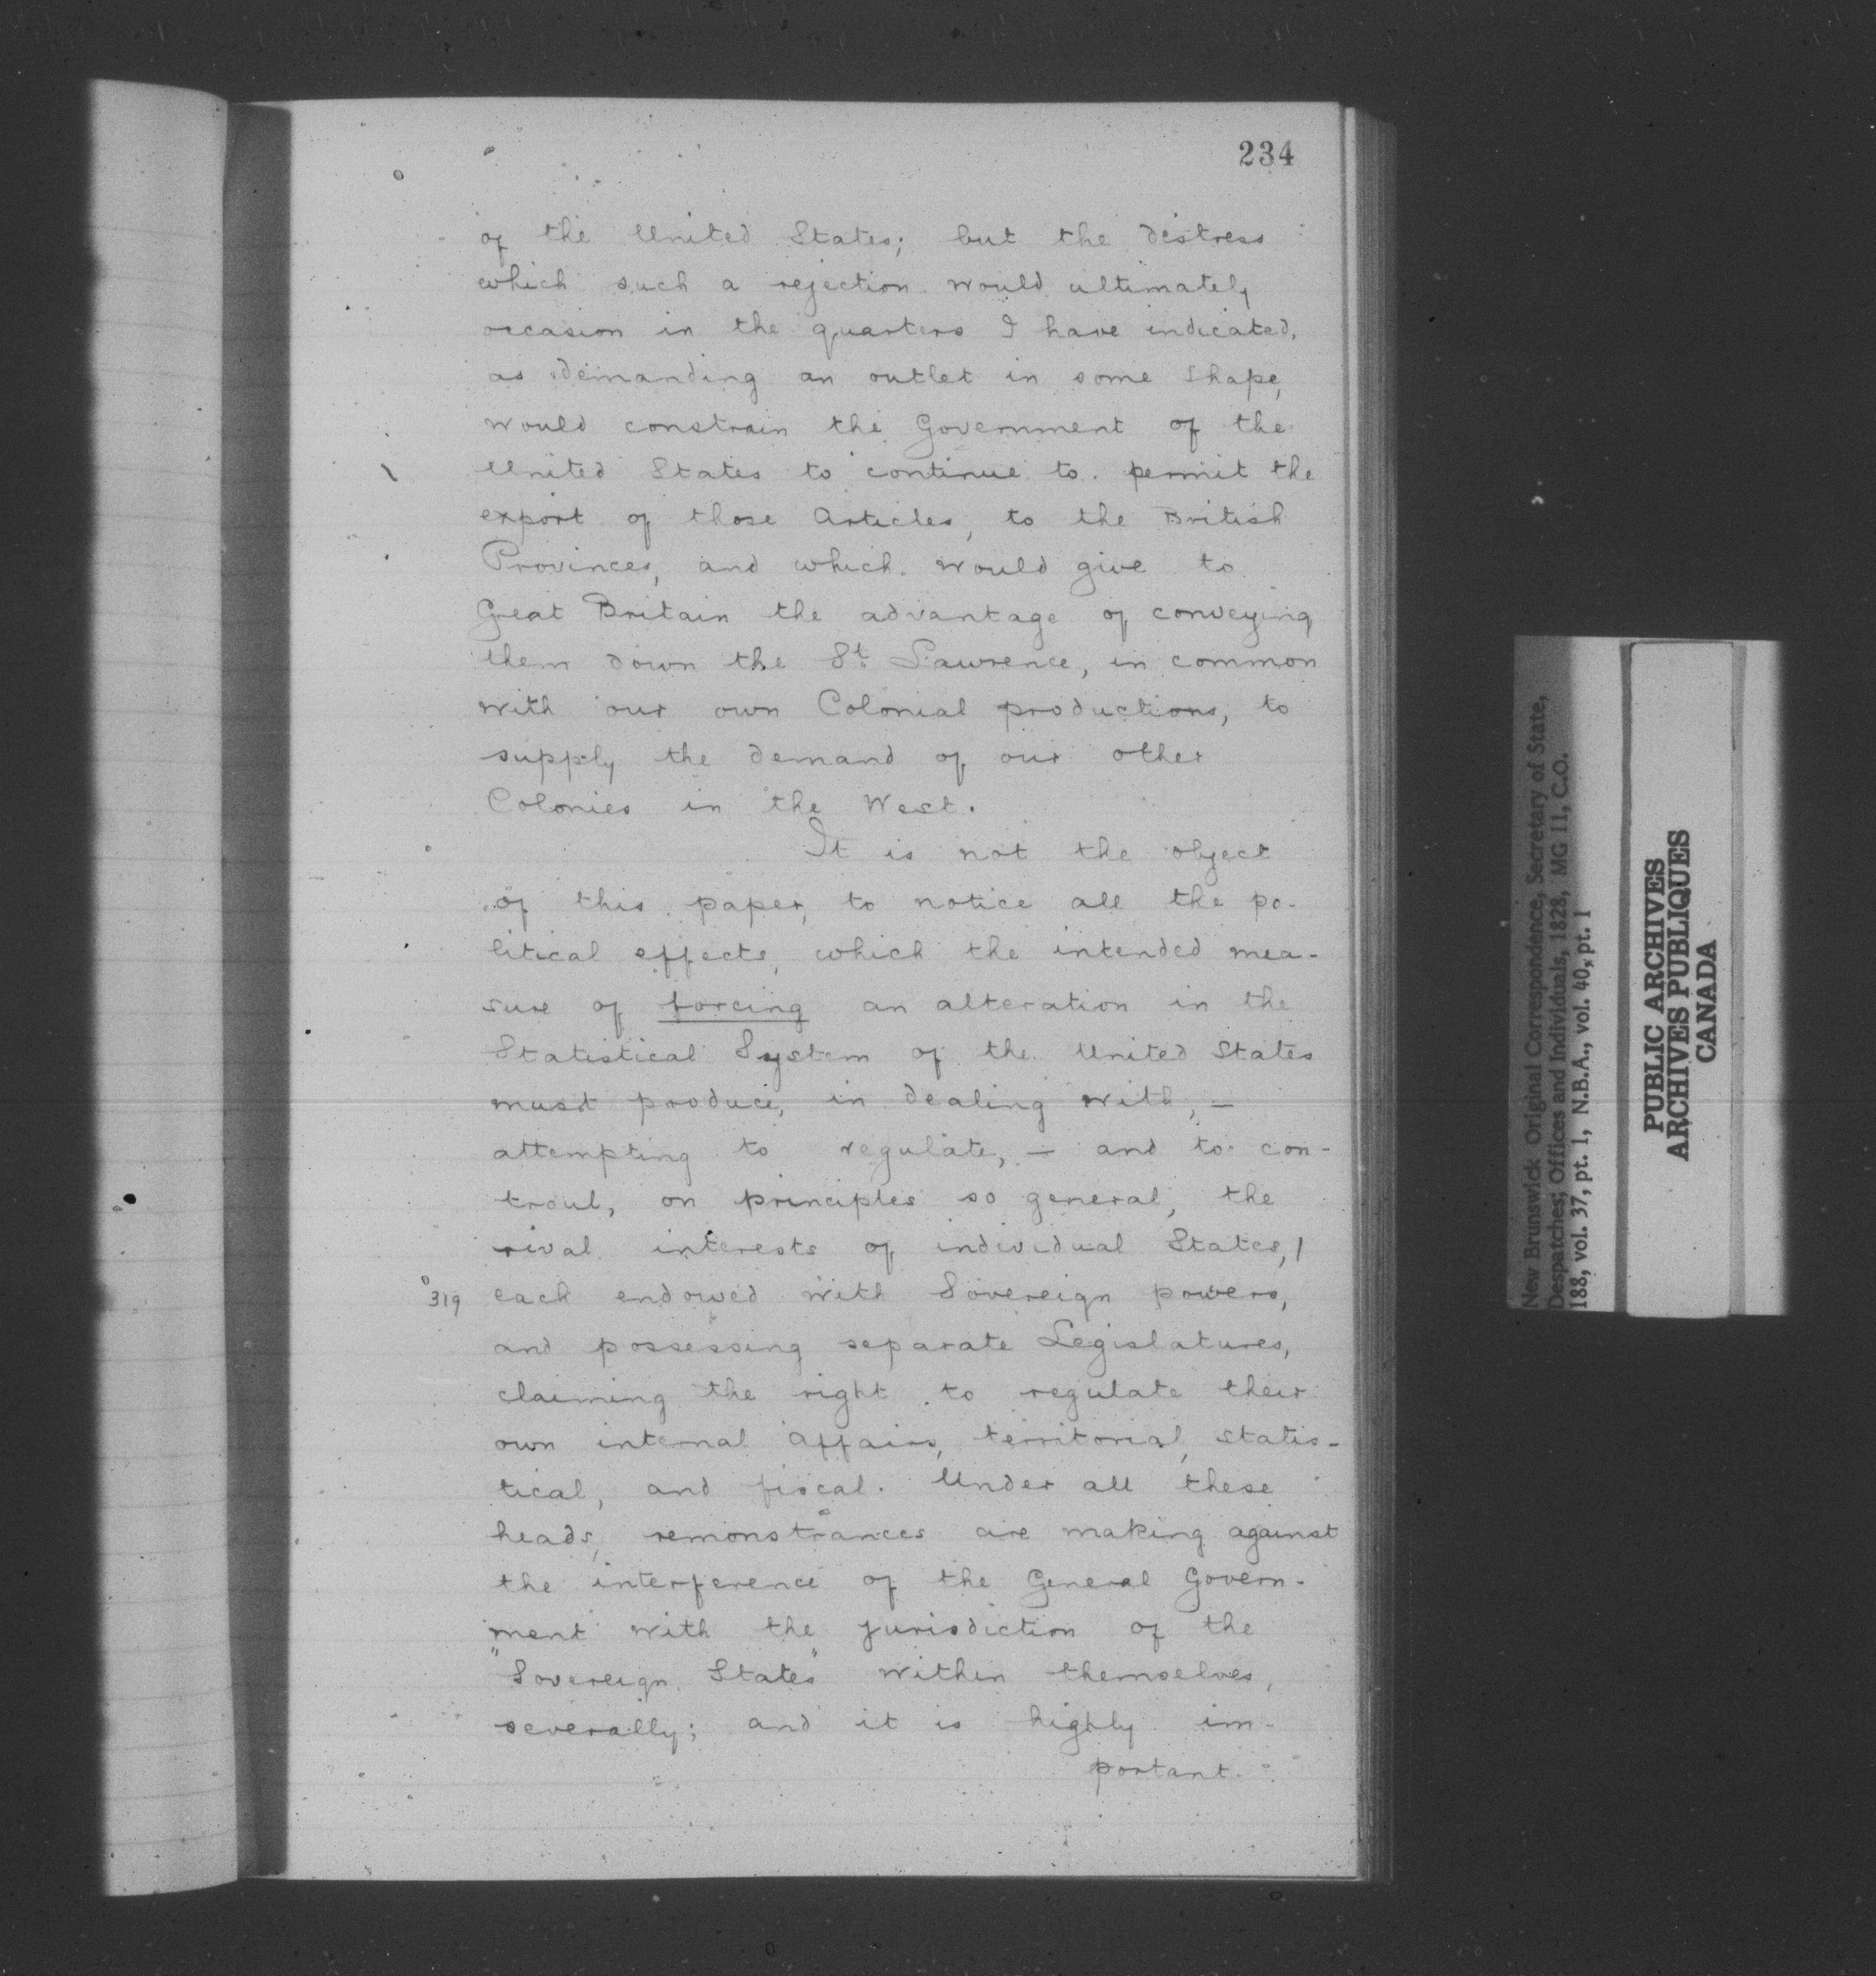 234
of the United States; but the distress
which such a rejection would ultimately
occasion in the quarters I have indicated,
as demanding an outlet in some shape,
would constrain the Government of the
United States to continue to permit the
export of those Articles, to the British
Provinces, and which would give to
Great Britain the advantage of conveying
them down the St. Lawrence, in common
with our own Colonial productions, to
supply the demand of our other
Colonies in the West.
It is not the object
of this paper, to notice all the po-
litical effects, which the intended mea-
sure of forcing an alteration in the
Statistical System of the United States
must produce, in dealing with, —
attempting to regulate, — and to con-
troul, on principles so general, the
rival interests of individual States, /
319 each endowed with Sovereign powers,
and possessing separate Legislatures,
claiming the right to regulate their
own internal affairs, territorial, statis-
tical, and fiscal. Under all these
heads, remonstrances are making against
the interference of the General Govern-
ment with the jurisdiction of the
"Sovereign States" within themselves,
severally; and it is highly im-
portant.
New Brunswick Original Correspondence, Secretary of State,
Despatches; Offices and Individuals, 1828, MG 11, C.O.
188, vol. 37, pt. 1, N.B.A., vol. 40, pt. 1
PUBLIC ARCHIVES
ARCHIVES PUBLIQUES
CANADA